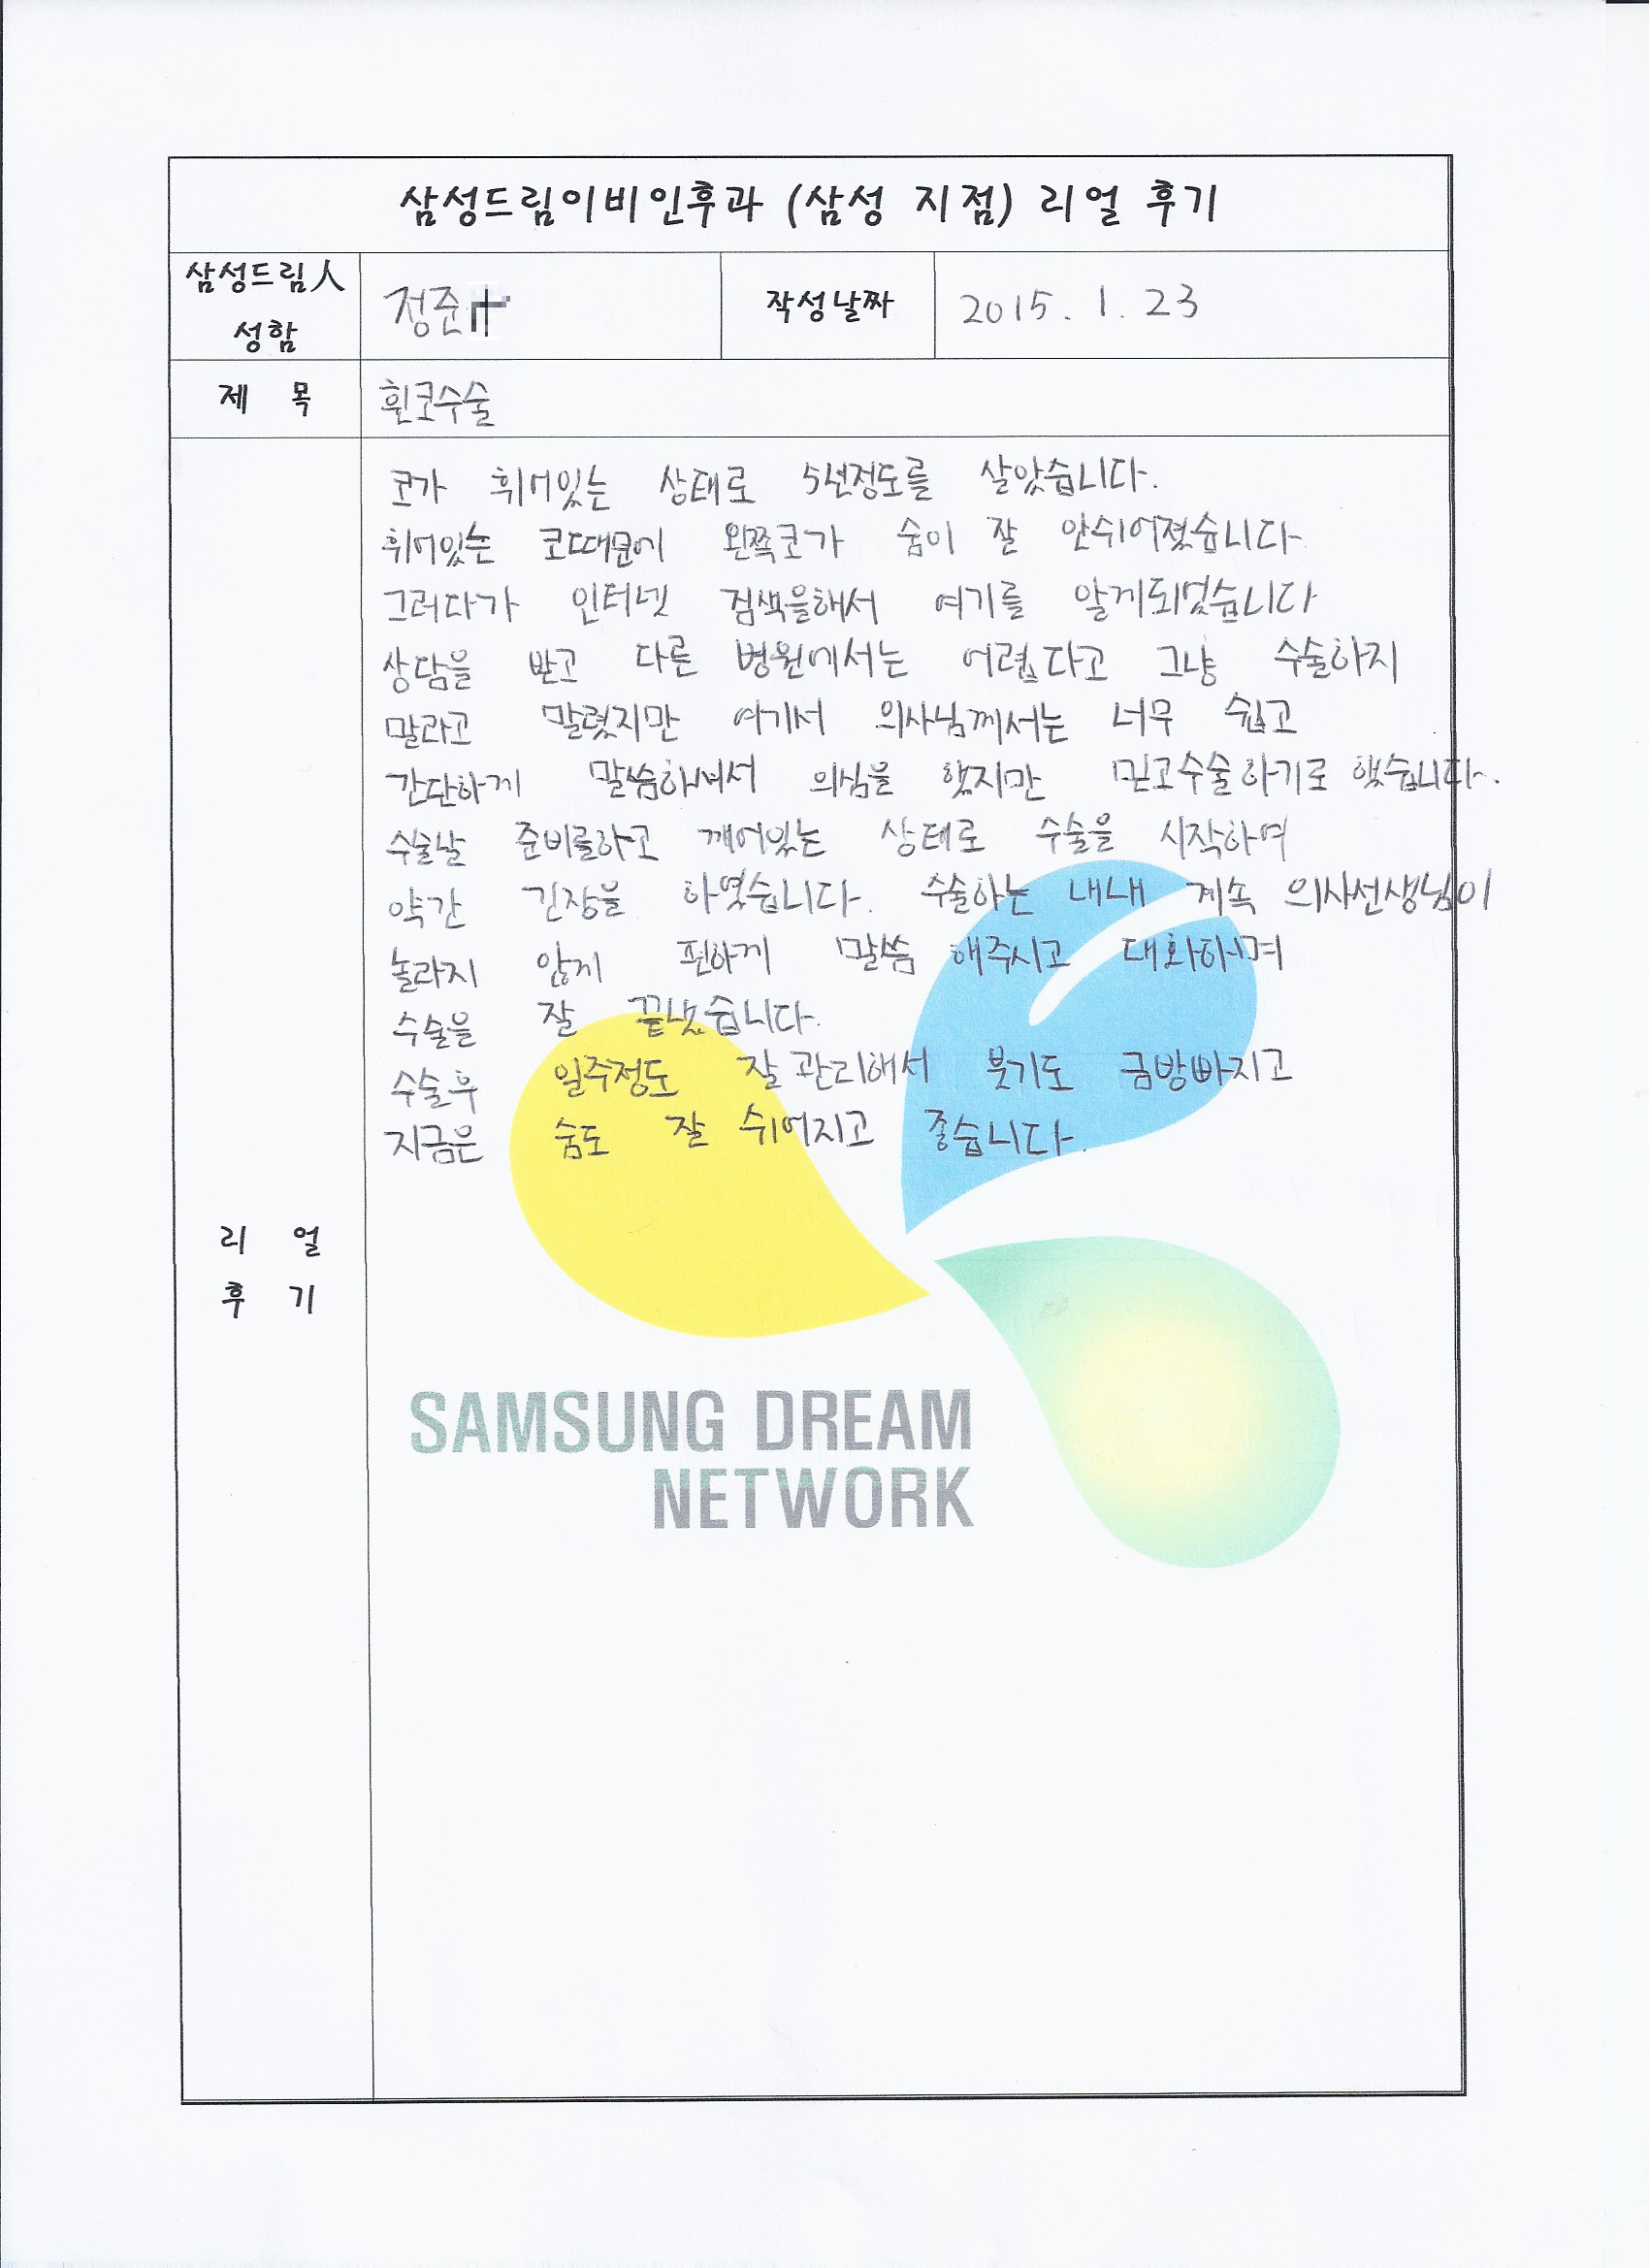 삼성드림이비인후과 (삼성 지점) 리얼 후기
삼성드림人
성함
정준
작성날짜
2015. 1. 23
제 목
휜코수술
코가 휘어있는 상태로 5년정도를 살았습니다.
휘어있는 코때문에 왼쪽코가 숨이 잘 안쉬어졌습니다.
그러다가 인터넷 검색을해서 여기를 알게되었습니다
상담을 받고 다른 병원에서는 어렵다고 그냥 수술하지
말라고 말렸지만 여기서 의사님께서는 너무 쉽고
간단하게 말씀하셔서 의심을 했지만 믿고수술하기로 했습니다.
수술날 준비를하고 깨어있는 상태로 수술을 시작하여
약간 긴장을 하였습니다. 수술하는 내내 계속 의사선생님이
놀라지 않게 편하게 말씀 해주시고 대화하며
수술을 잘 끝냈습니다.
수술후 일주정도 잘 관리해서 붓기도 금방빠지고
지금은 숨도 잘 쉬어지고 좋습니다.
리 얼
후 기
SAMSUNG DREAM
NETWORK